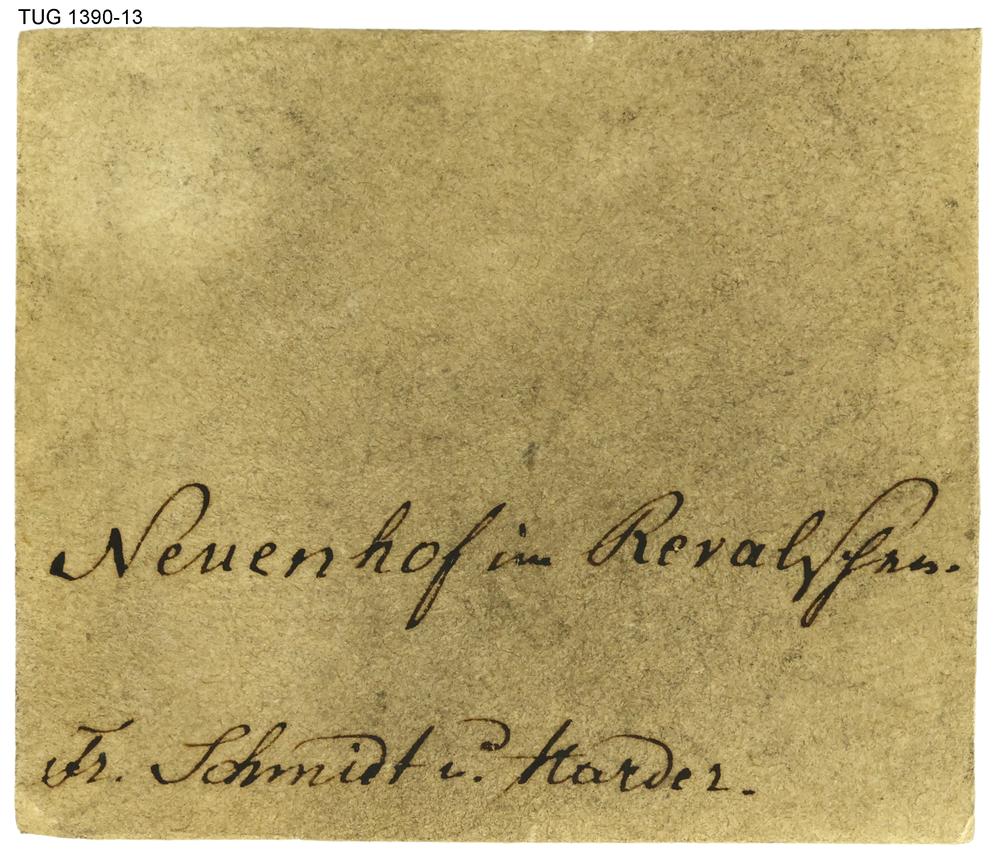 TUG 1390-13
Neuenhof im Revalschen.
Fr. Schmidt u. Harder.